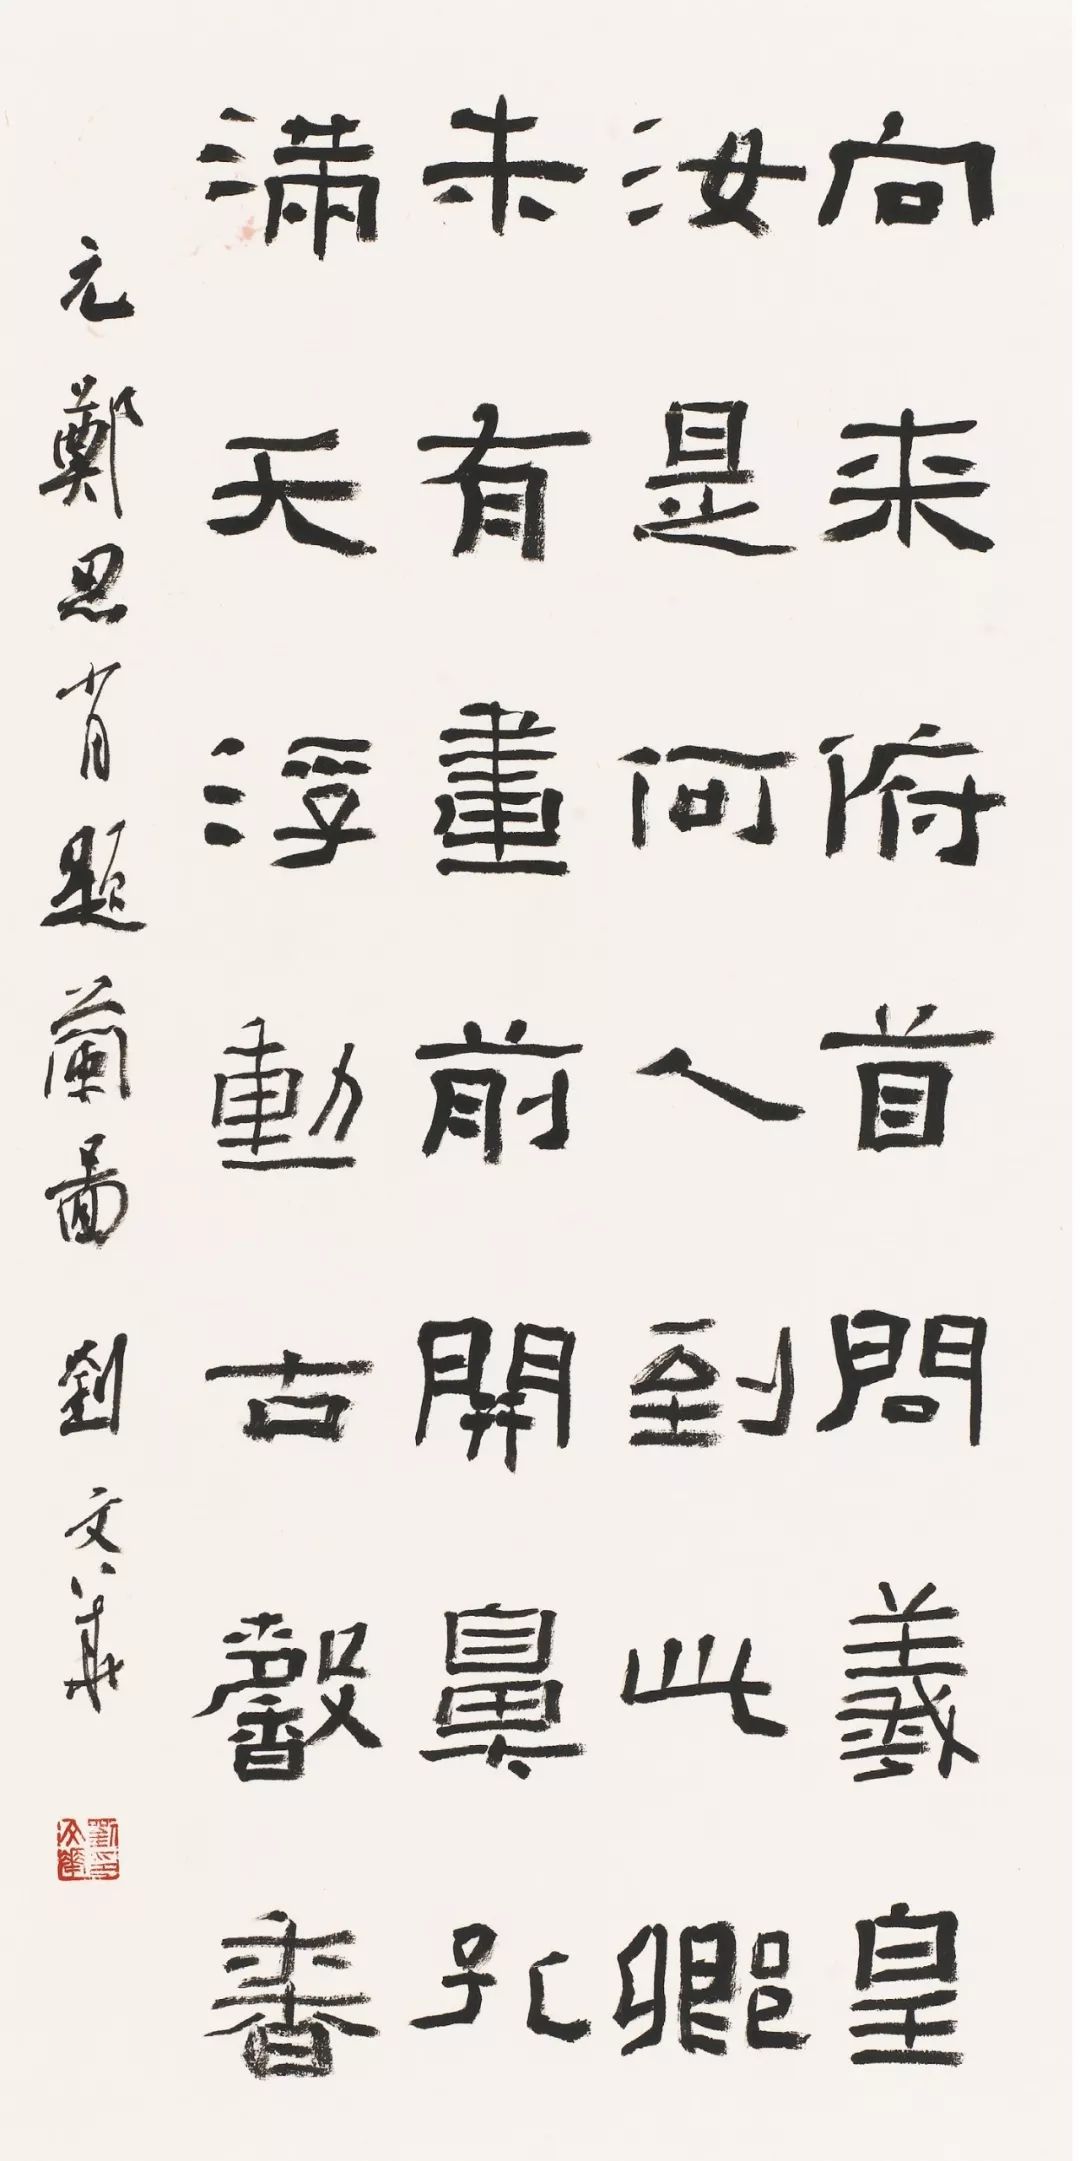 向来俯首問羲皇
汝是何人到此鄉
未有畫前開鼻孔
滿天浮動古馨香
元鄭思肖題蘭圖 劉文華
劉印文華